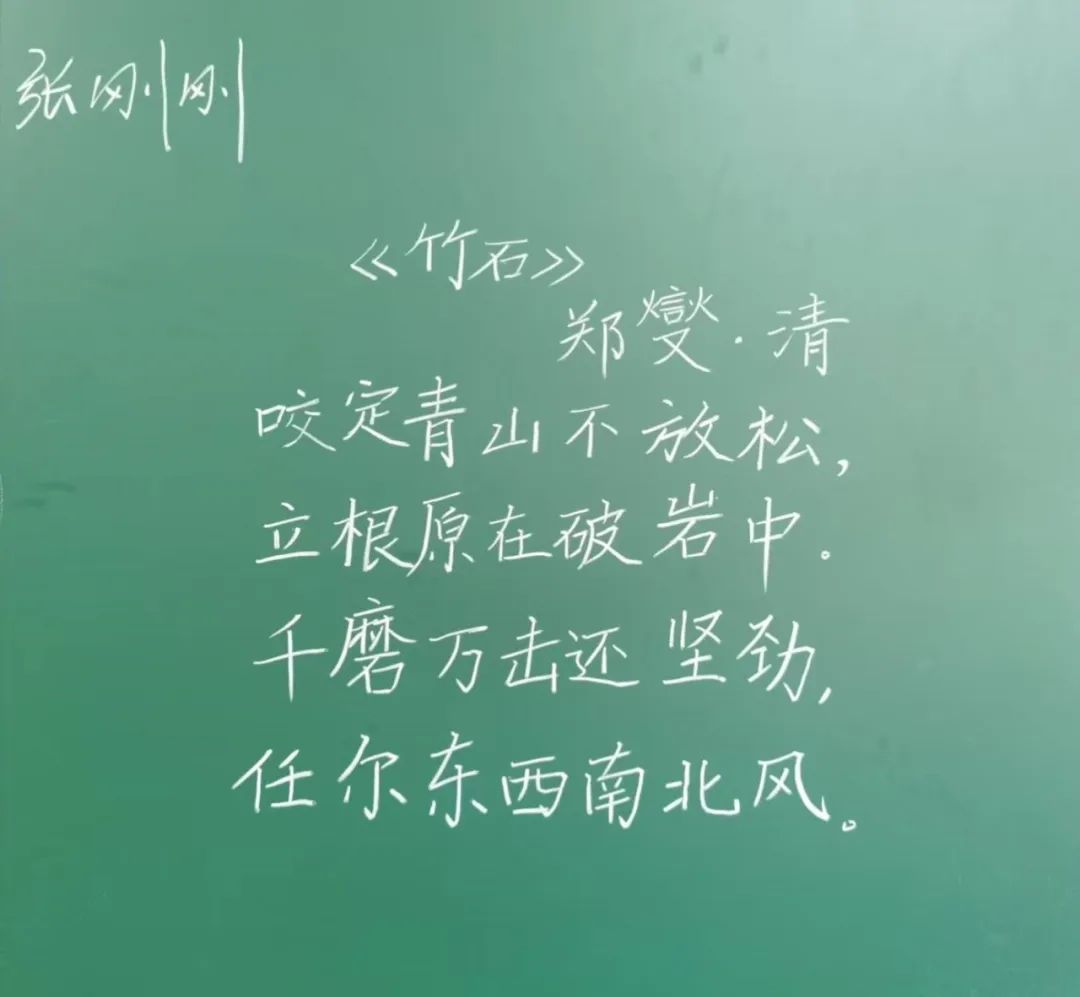 张刚刚
《竹石》
郑燮·清
咬定青山不放松，
立根原在破岩中。
千磨万击还坚劲，
任尔东西南北风。